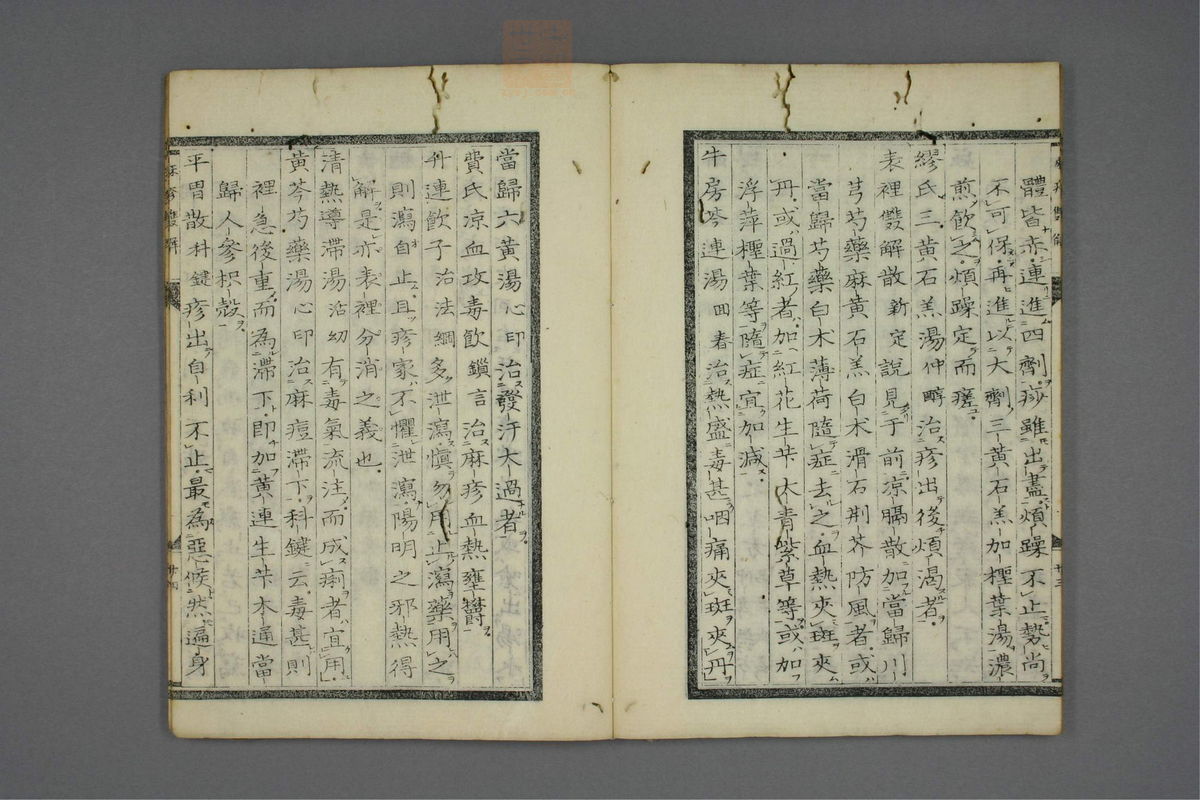 體皆赤連進四劑疹雖出盡煩躁不止勢尚
不可保再進以大劑三黃石羔加檉葉湯濃
煎飲之煩躁定而瘥
繆氏三黃石羔湯仲醇治疹出後煩渴者
表裡雙解散新定說見于前凉膈散加當歸川
芎芍藥麻黃石羔白朮滑石荆芥防風者或
當歸芍藥白朮薄荷隨症去之血熱夾斑夾
丹或過紅者加紅花生芐大青紫草等或加
浮萍檉葉等隨症宜加減
牛房芩連湯回春治熱盛毒甚咽痛夾斑夾丹
當歸六黃湯心印治發汗大過者
費氏凉血攻毒飲鎖言治麻疹血熱壅欝
升連飲子治法綱多泄瀉慎勿用止瀉藥用之
則瀉自止且疹家不懼泄瀉陽明之邪熱得
解是亦表裡分消之義也
清熱導滯湯活幼有毒氣流注而成痢者宜用
黃芩芍藥湯心印治麻痘滯下科鍵云毒甚則
裡急後重而為滯下即加黃連生芐木通當
歸人參枳殼
平胃散朴鍵疹出自利不止最為惡候然遍身